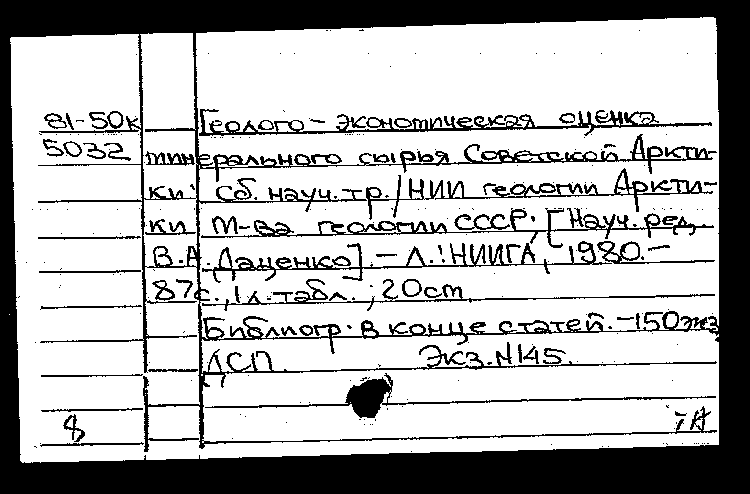 81-50к Геолого-экономическая оценка
5032 минерального сырья Советской Аркти-
ки: Сб. науч. тр. / НИИ геологии Аркти-
ки М-ва геологии СССР; [Науч. ред.
В.А. Даценко]. – Л.: НИИГА, 1980. –
87с., 1 л. табл.; 20см.
Библиогр. в конце статей. – 150 экз.
ДСП. Экз. N145.
8